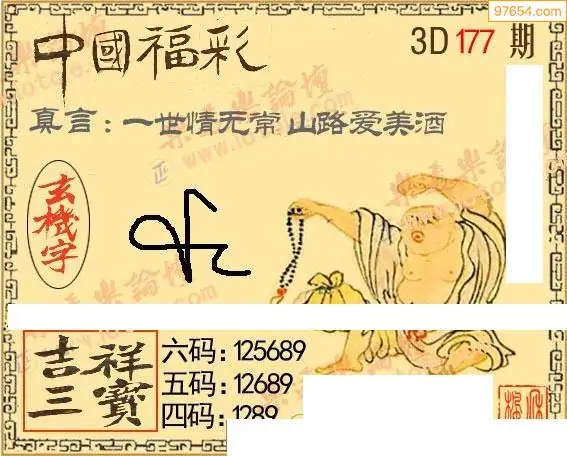 97654.com
中國福彩
3D 177 期
真言：一世情无常 山路爱美酒
玄機字
吉祥三寶
六码：125689
五码：12689
四码：1289